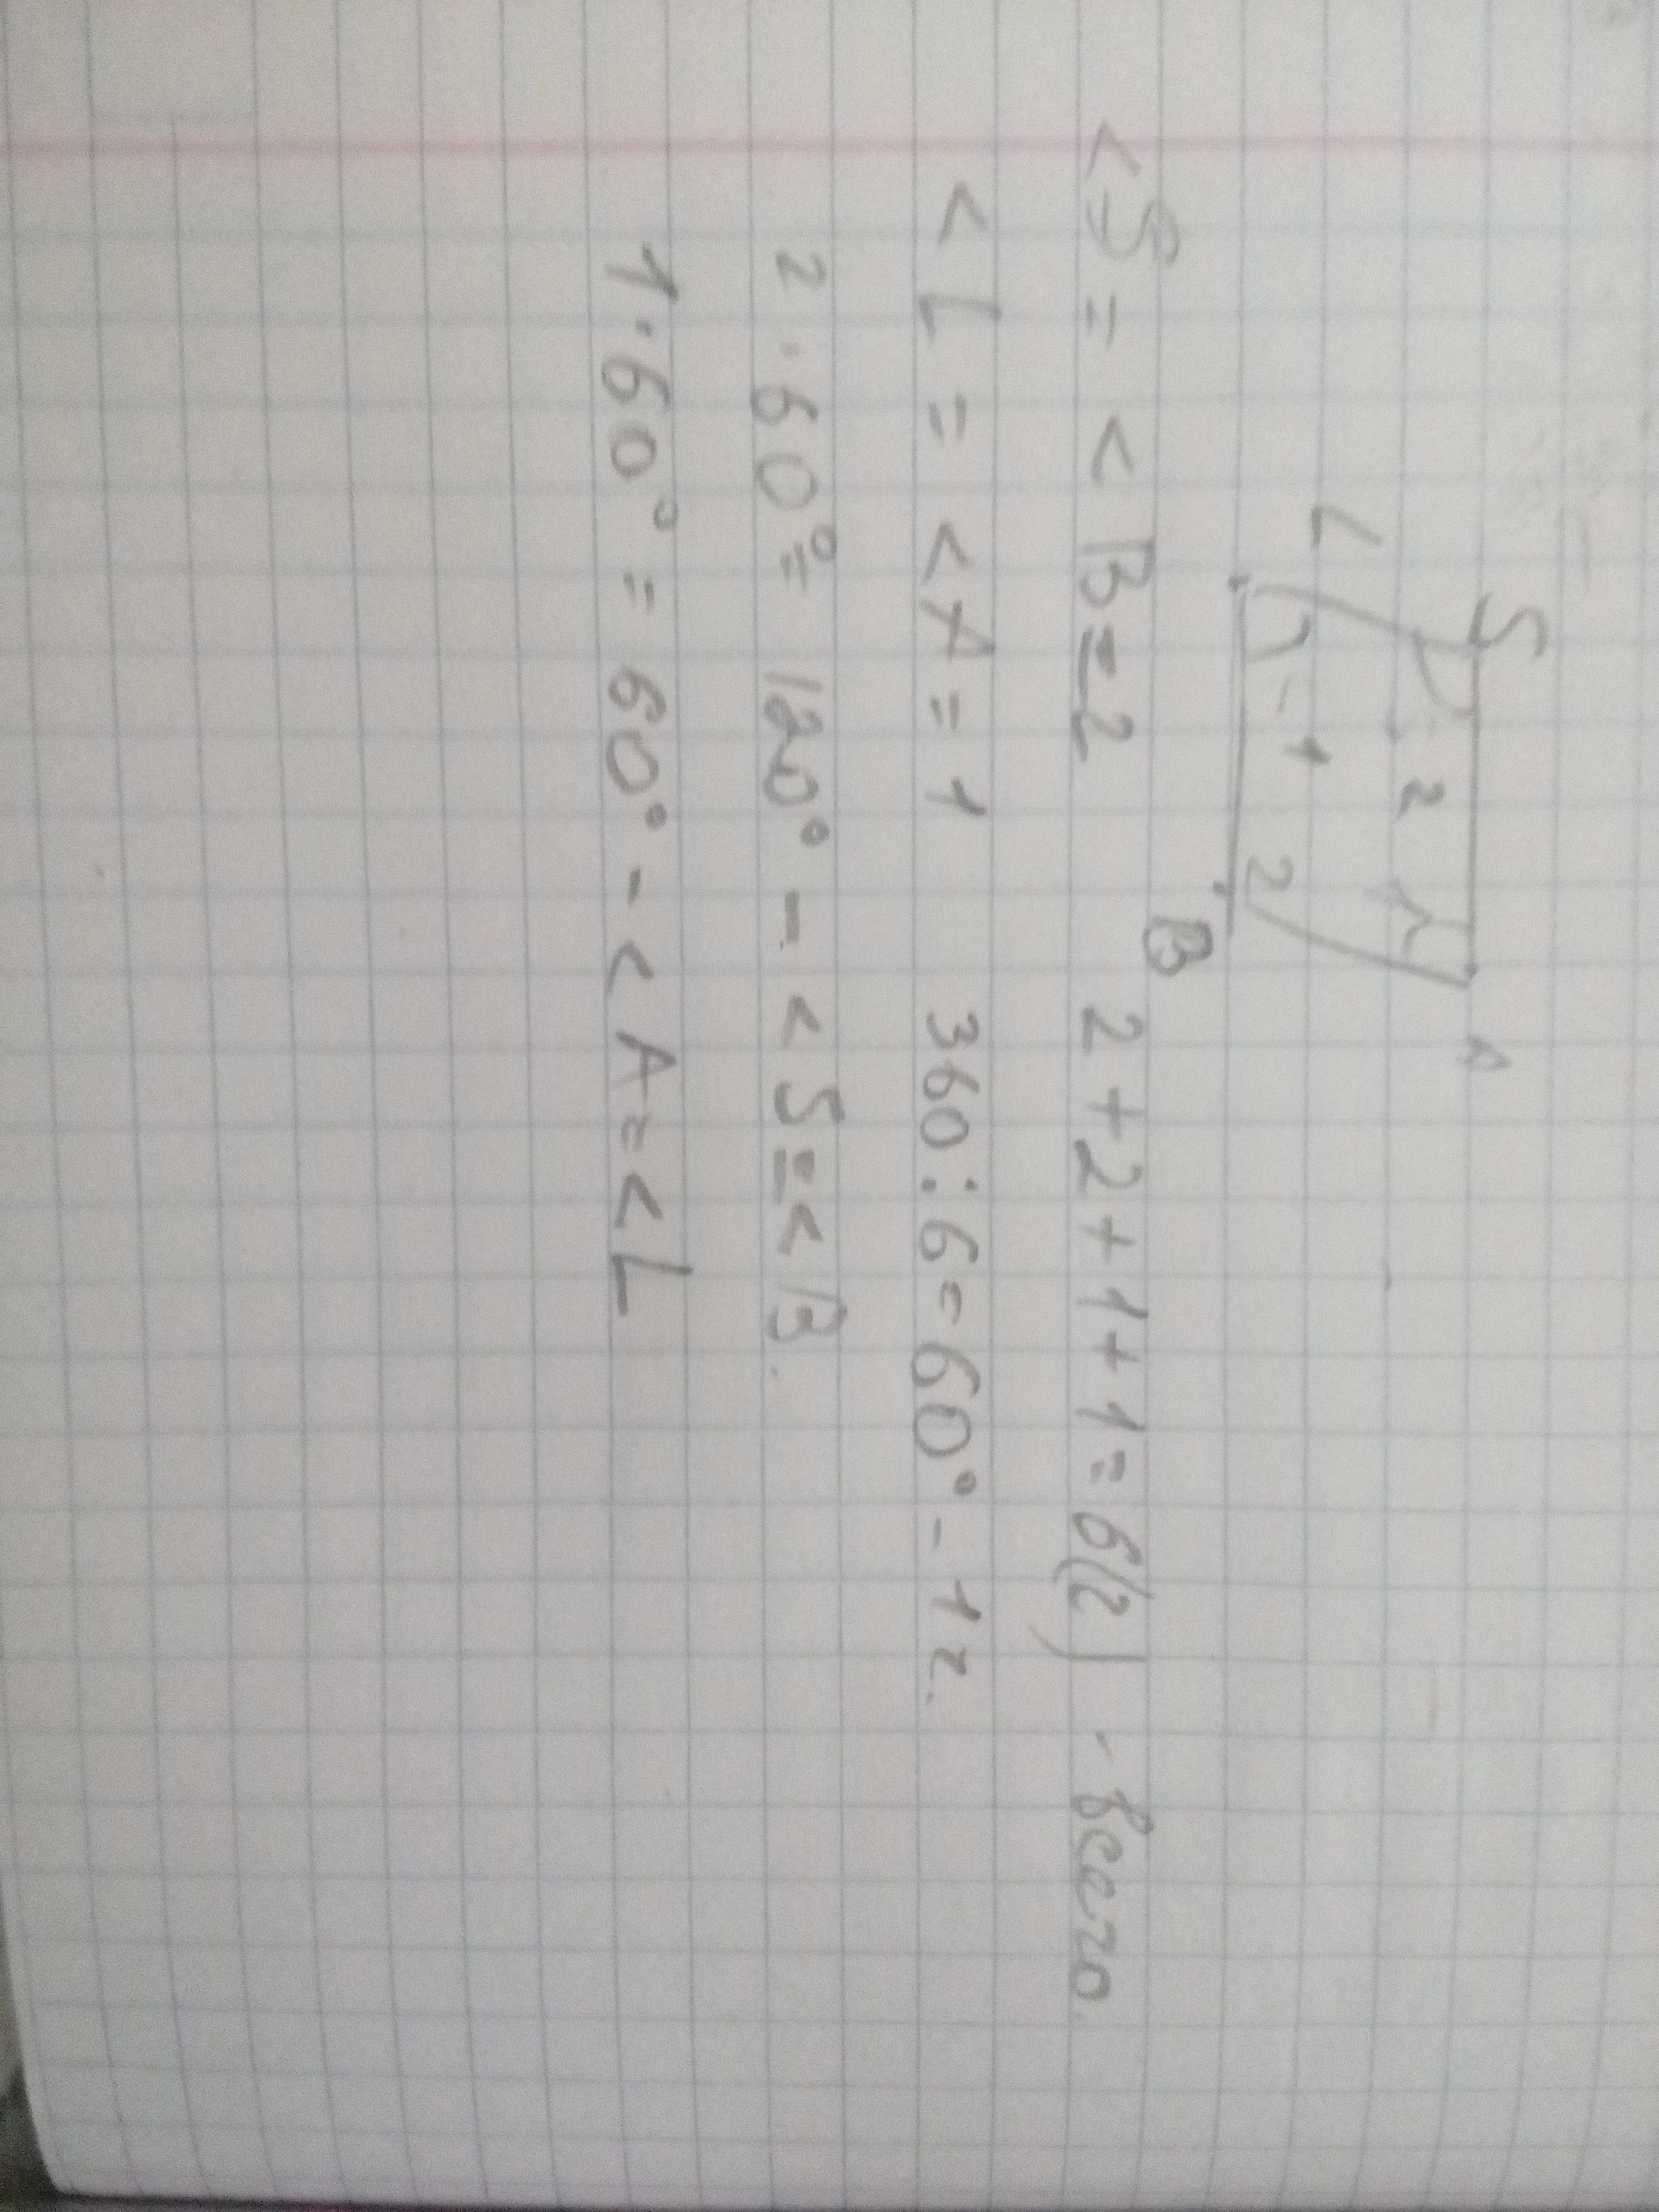 S A
2 1
L - 1 2 B
< S = < B = 2 2 + 2 + 1 + 1 = 6 (г) - всего.
< L = < A = 1 360 : 6 = 60° - 1 г.
2 · 60° = 120° - < S = < B.
1 · 60° = 60° - < A = < L